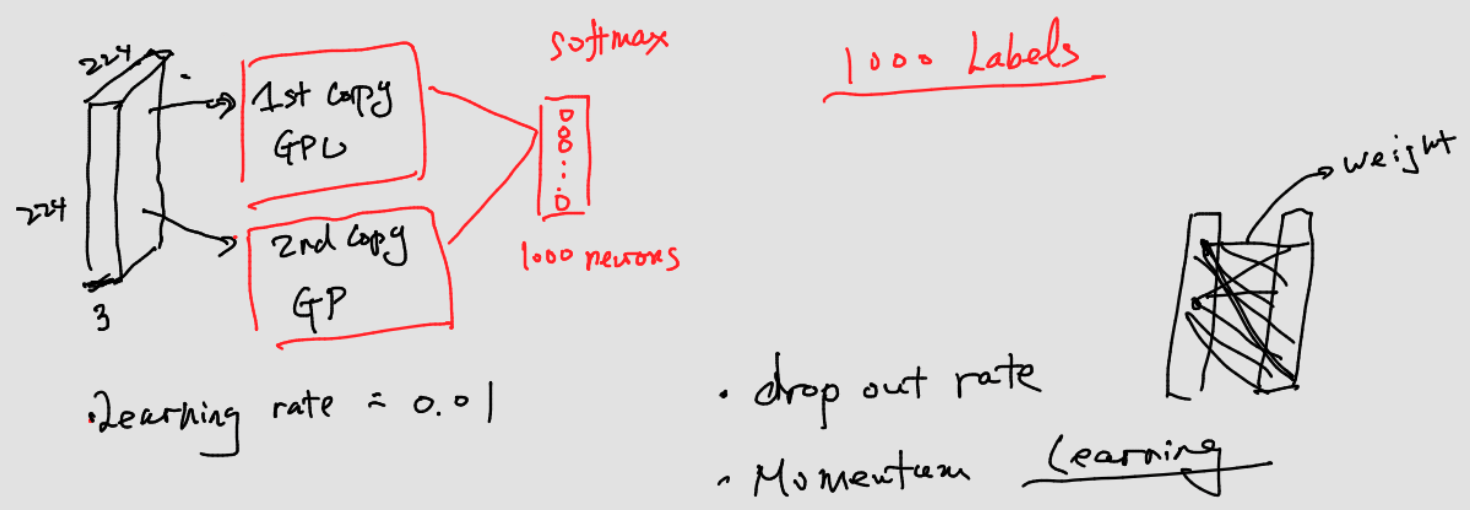 224
224
3
1st copy
GPU
2nd copy
GP
softmax
1000 neurons
1000 Labels
weight
• Learning rate = 0.01
• drop out rate
• Momentum Learning